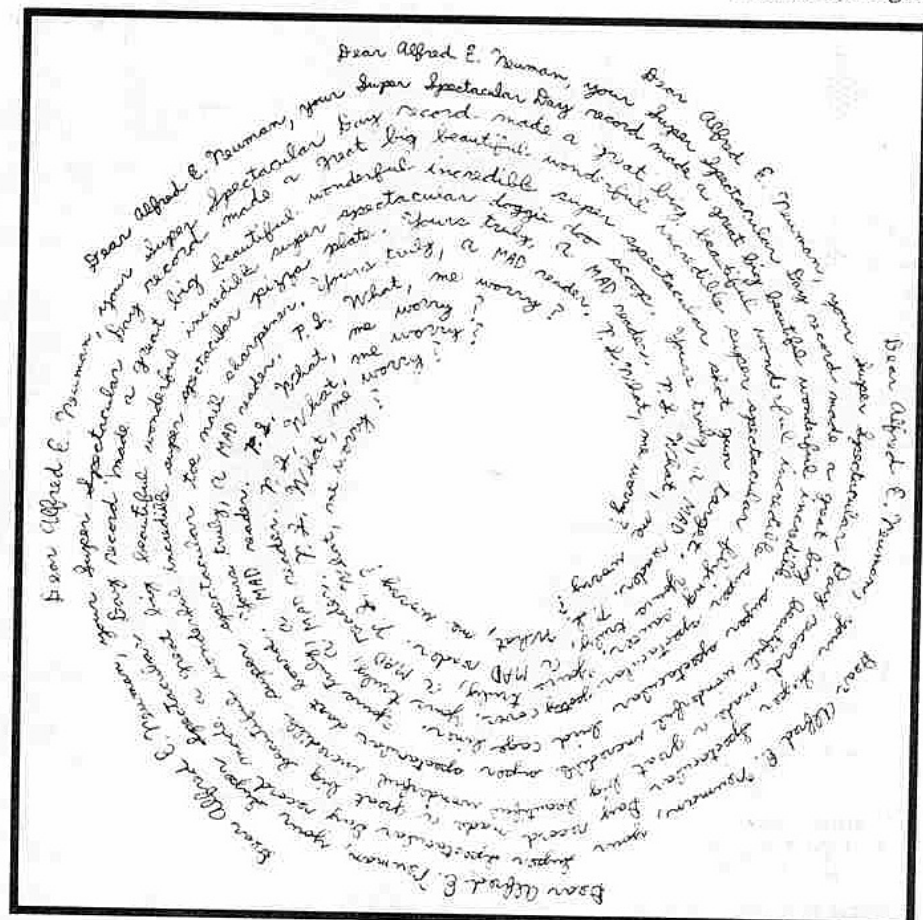 Dear Alfred E. Neuman, your Super Spectacular Day record made a great big beautiful wonderful incredible super spectacular flying saucer. Yours truly, a MAD reader. P.S. What, me worry?
Dear Alfred E. Neuman, your Super Spectacular Day record made a great big beautiful wonderful incredible super spectacular potty cover. Yours truly, a MAD reader. P.S. What, me worry?
Dear Alfred E. Neuman, your Super Spectacular Day record made a great big beautiful wonderful incredible super spectacular bird cage liner. Yours truly, a MAD reader. P.S. What, me worry?
Dear Alfred E. Neuman, your Super Spectacular Day record made a great big beautiful wonderful incredible super spectacular dart board. Yours truly, a MAD reader. P.S. What, me worry?
Dear Alfred E. Neuman, your Super Spectacular Day record made a great big beautiful wonderful incredible super spectacular toe nail sharpener. Yours truly, a MAD reader. P.S. What, me worry?
Dear Alfred E. Neuman, your Super Spectacular Day record made a great big beautiful wonderful incredible super spectacular pizza plate. Yours truly, a MAD reader. P.S. What, me worry?
Dear Alfred E. Neuman, your Super Spectacular Day record made a great big beautiful wonderful incredible super spectacular doggie doo scoop. Yours truly, a MAD reader. P.S. What, me worry?
Dear Alfred E. Neuman, your Super Spectacular Day record made a great big beautiful wonderful incredible super spectacular shot gun target. Yours truly, a MAD reader. P.S. What, me worry?